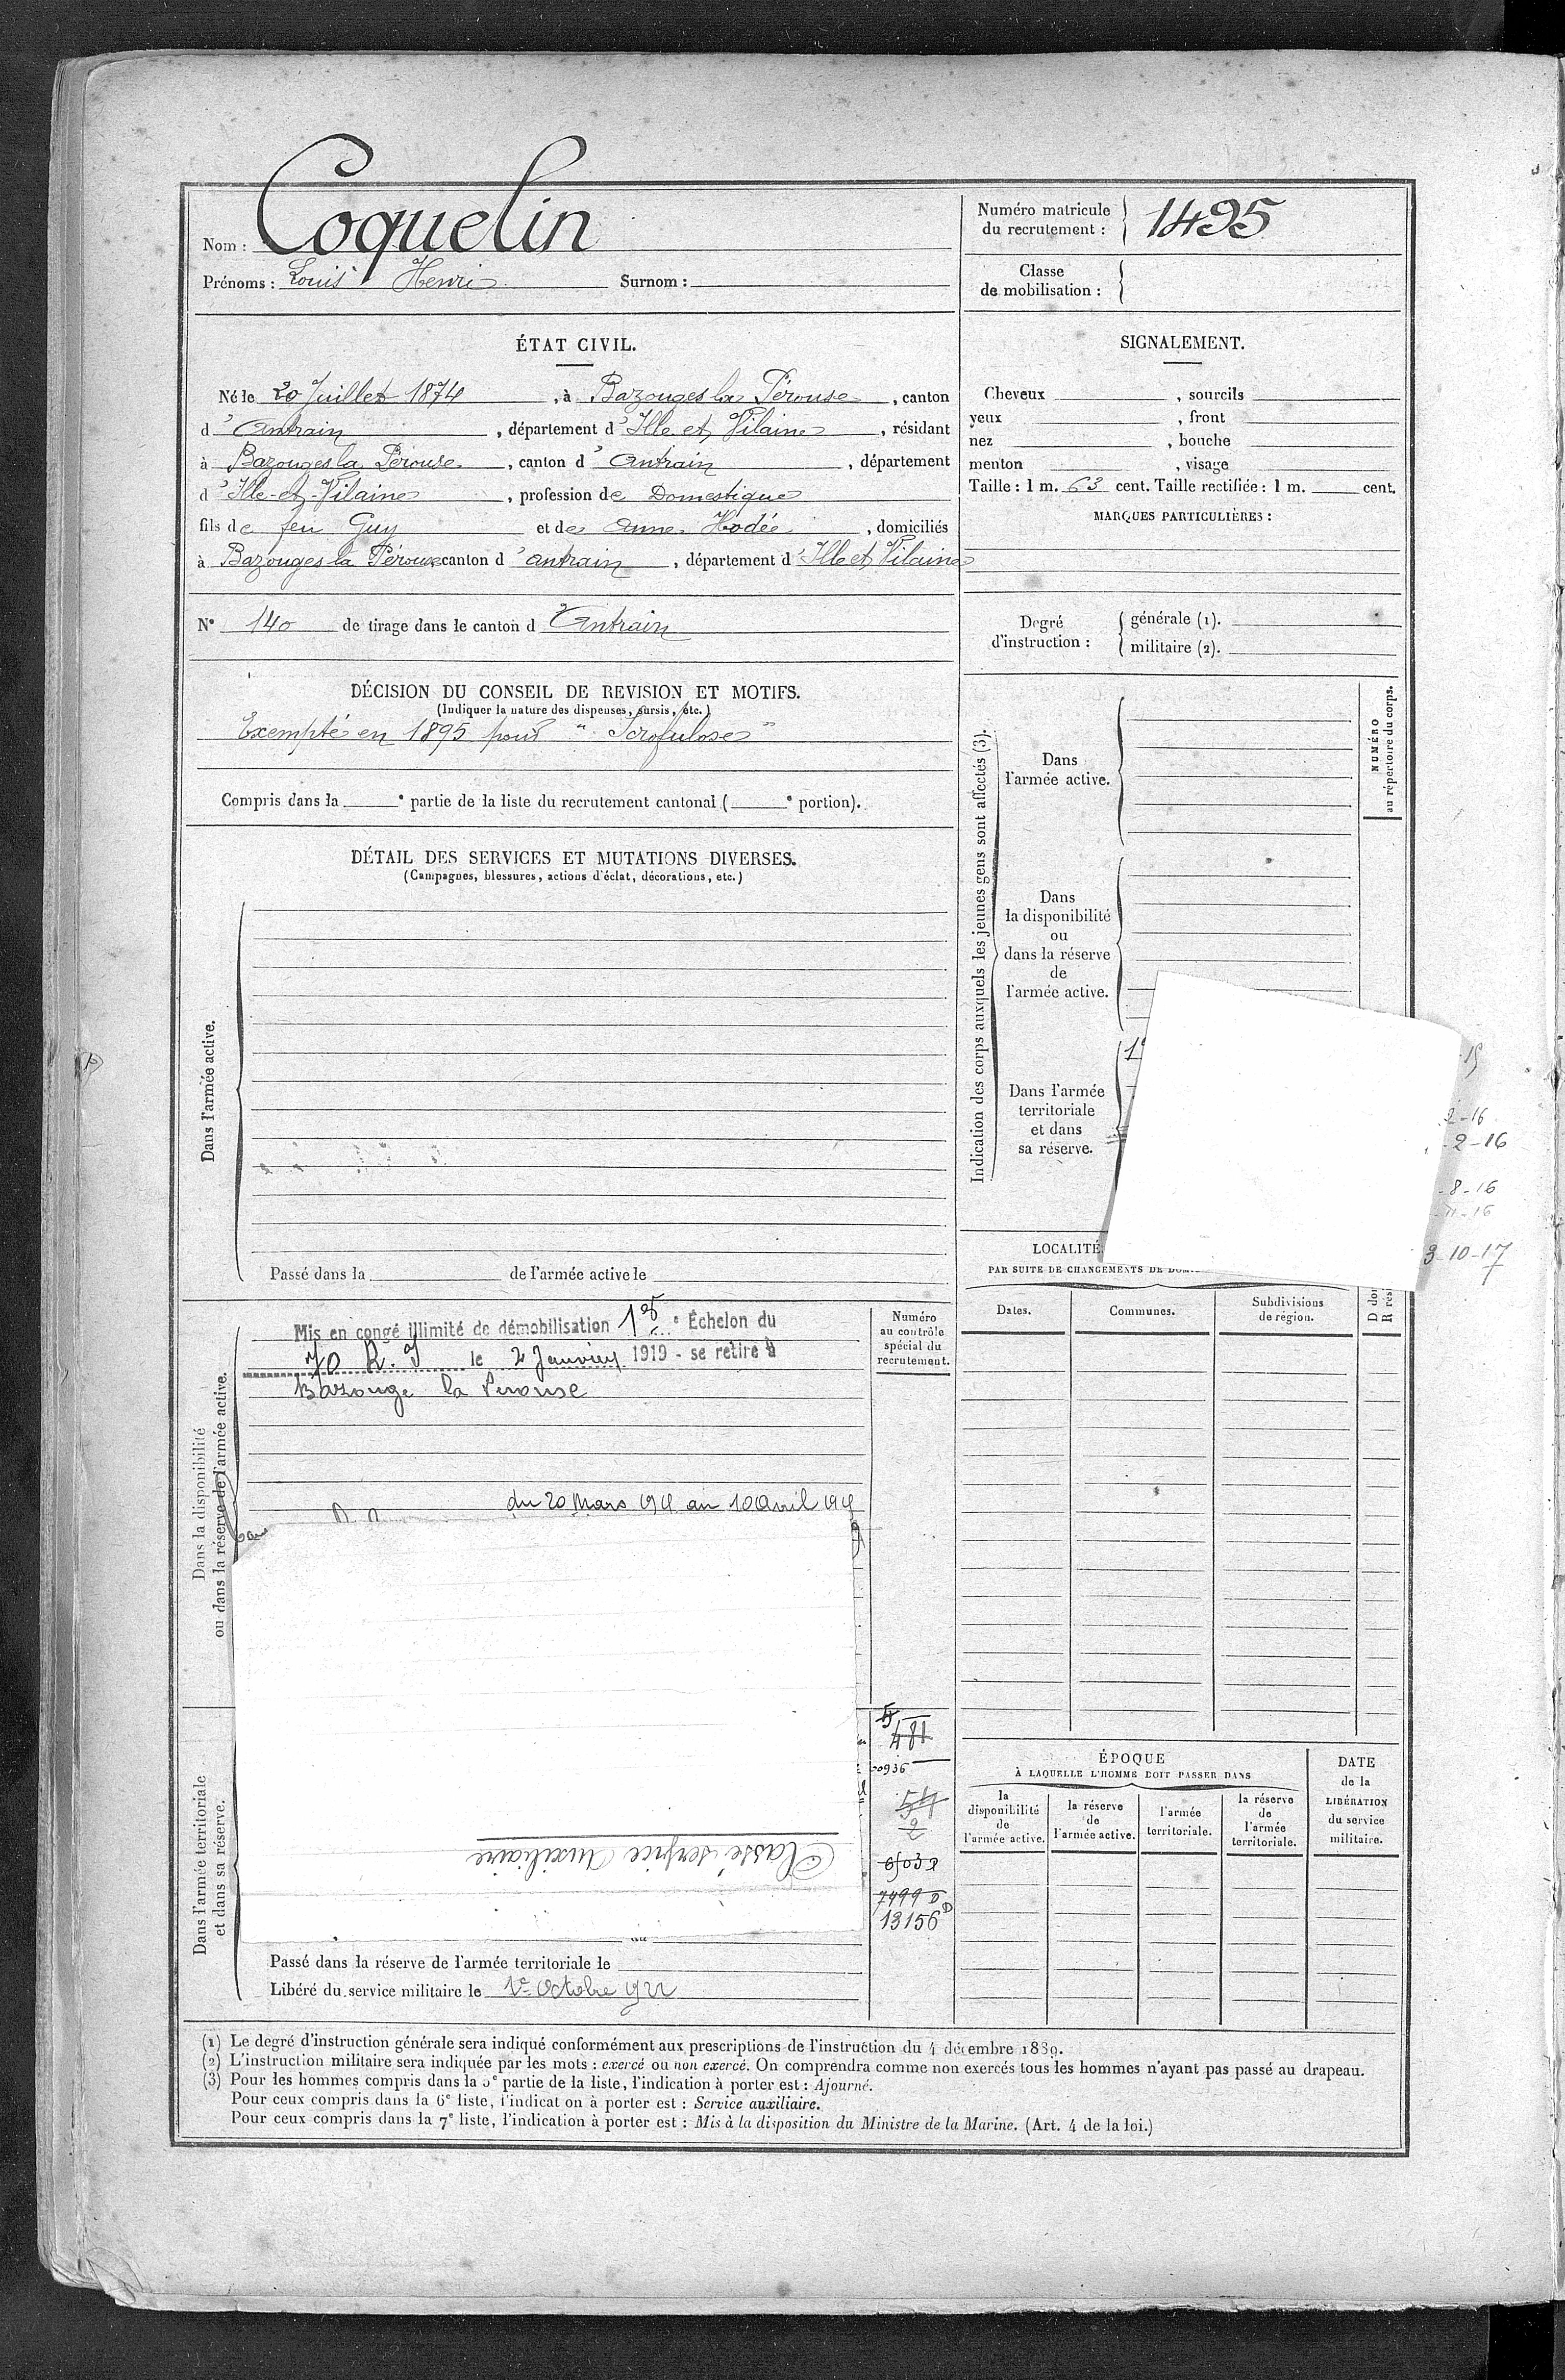 Nom : Coquelin
Prénoms : Louis Henri Surnom :
Numéro matricule du recrutement : 1495
Classe de mobilisation :
ÉTAT CIVIL.
Né le 20 Juillet 1874, à Bazouges la Pérouse, canton
d'Antrain, département d'Ille et Vilaine, résidant
à Bazouges la Pérouse, canton d'Antrain, département
d'Ille-et-Vilaine, profession de Domestique
fils de feu Guy et de Anne Hodée, domiciliés
à Bazouges la Pérouse canton d'antrain, département d'Ille et Vilaine
N° 140 de tirage dans le canton d'Antrain
SIGNALEMENT.
Cheveux , sourcils
yeux , front
nez , bouche
menton , visage
Taille : 1 m. 63 cent. Taille rectifiée : 1 m. cent.
MARQUES PARTICULIÈRES :
Degré d'instruction : générale (1).
militaire (2).
DÉCISION DU CONSEIL DE REVISION ET MOTIFS.
(Indiquer la nature des dispenses, sursis, etc.)
Exempté en 1895 pour " Scrofulose "
Compris dans la e partie de la liste du recrutement cantonal ( e portion).
DÉTAIL DES SERVICES ET MUTATIONS DIVERSES.
(Campagnes, blessures, actions d'éclat, décorations, etc.)
Dans l'armée active.
Passé dans la de l'armée active le
Indication des corps auxquels les jeunes gens sont affectés (3).
Dans
l'armée active.
NUMÉRO
au répertoire du corps.
Dans
la disponibilité
ou
dans la réserve
de
l'armée active.
Dans l'armée
territoriale
et dans
sa réserve.
2-16
-2-16
-8-16
-11-16
3-10-17
LOCALITÉ
PAR SUITE DE CHANGEMENTS DE
Dates.
Communes.
Subdivisions
de région.
Dans la disponibilité
ou dans la réserve de l'armée active.
Mis en congé illimité de démobilisation 1er Échelon du
70 R. I le 2 Janvier 1919 - se retire à
Bazouge la Perouse
du 20 Mars 1915 au 10 Avril 1915
Numéro
au contrôle
spécial du
recrutement.
481
0936
54
2
6503
7499 D
13156 D
Dans l'armée territoriale
et dans sa réserve.
Classé service Auxiliaire
Passé dans la réserve de l'armée territoriale le
Libéré du service militaire le 1er Octobre 1922
ÉPOQUE
À LAQUELLE L'HOMME DOIT PASSER DANS
la
disponibilité
de
l'armée active.
la réserve
de
l'armée active.
l'armée
territoriale.
la réserve
de
l'armée
territoriale.
DATE
de la
LIBÉRATION
du service
militaire.
(1) Le degré d'instruction générale sera indiqué conformément aux prescriptions de l'instruction du 4 décembre 1889.
(2) L'instruction militaire sera indiquée par les mots : exercé ou non exercé. On comprendra comme non exercés tous les hommes n'ayant pas passé au drapeau.
(3) Pour les hommes compris dans la 5e partie de la liste, l'indication à porter est : Ajourné.
Pour ceux compris dans la 6e liste, l'indication à porter est : Service auxiliaire.
Pour ceux compris dans la 7e liste, l'indication à porter est : Mis à la disposition du Ministre de la Marine. (Art. 4 de la loi.)